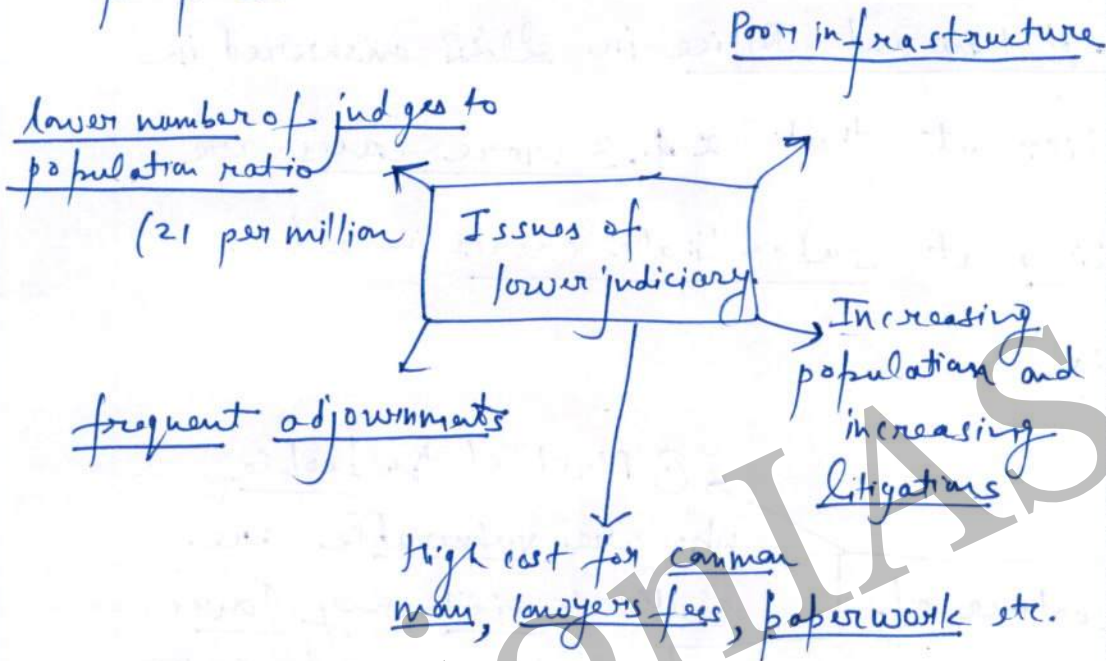 Poor infrastructure
lower number of judges to
population ratio
(21 per million
Issues of
lower judiciary.
Increasing
population and
increasing
litigations
frequent adjournments
High cost for common
man, lawyers fees, paperwork etc.
onIAS